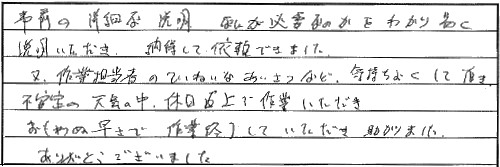 事前の詳細な説明 なにが必要なのかをわかり易く
説明いただき、納得して依頼できました。
又、作業担当者のていねいなあいさつなど、気持ちよくして頂き
不安定の天気の中、休日返上で作業いただき
おもわぬ早さで 作業終了していただき 助かりました。
ありがとうございました